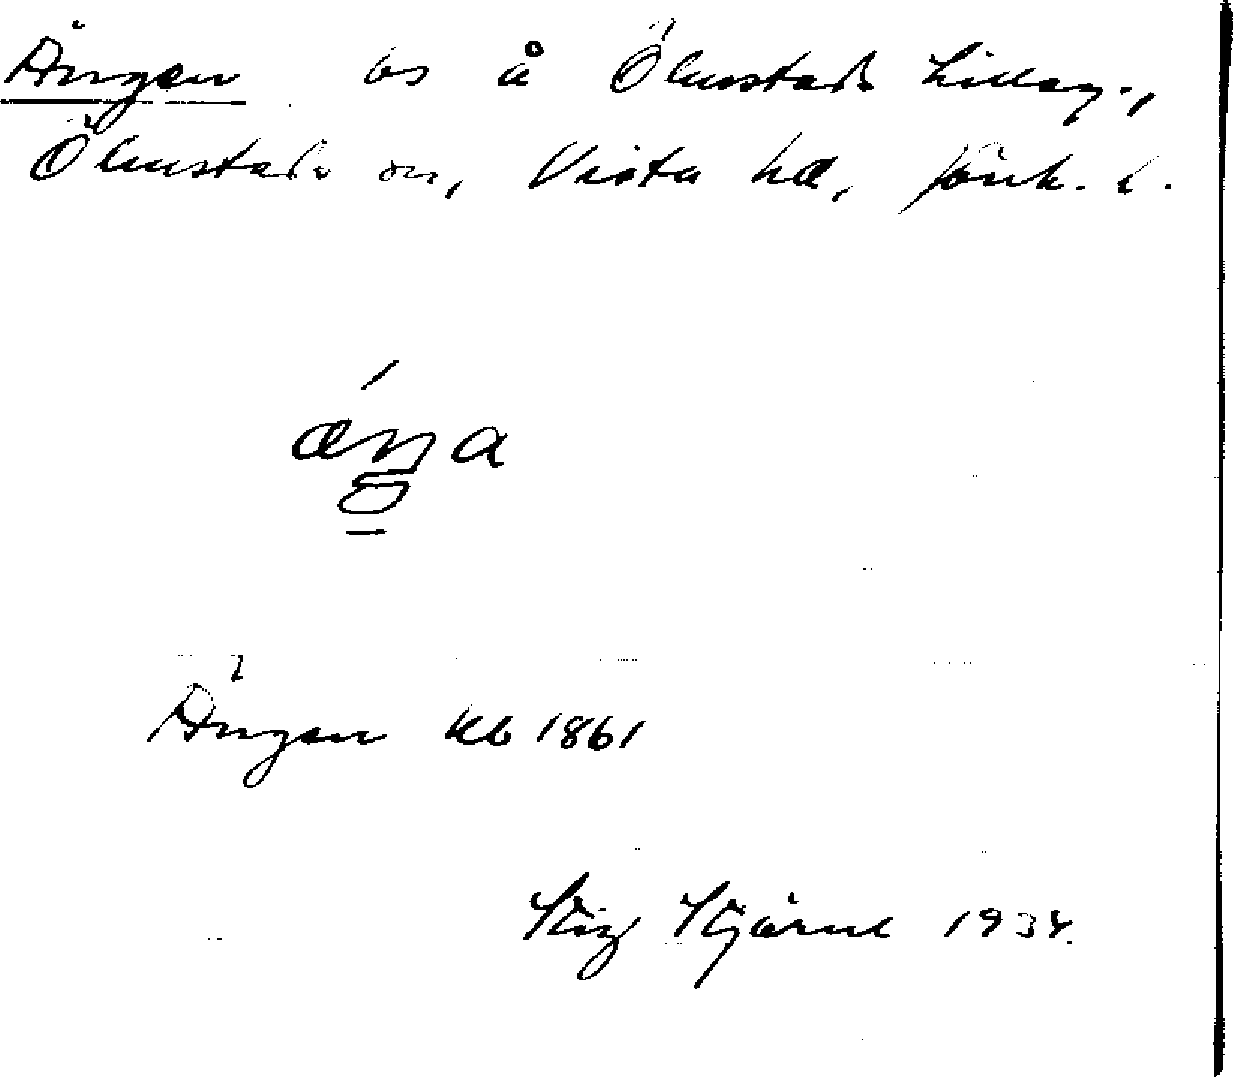 Ängen bs å Ölmstads Lilleg.,
Ölmstads sn, Vista hd, Jönk. l.
Ängen kb 1861
Stig Stjärne 1934.